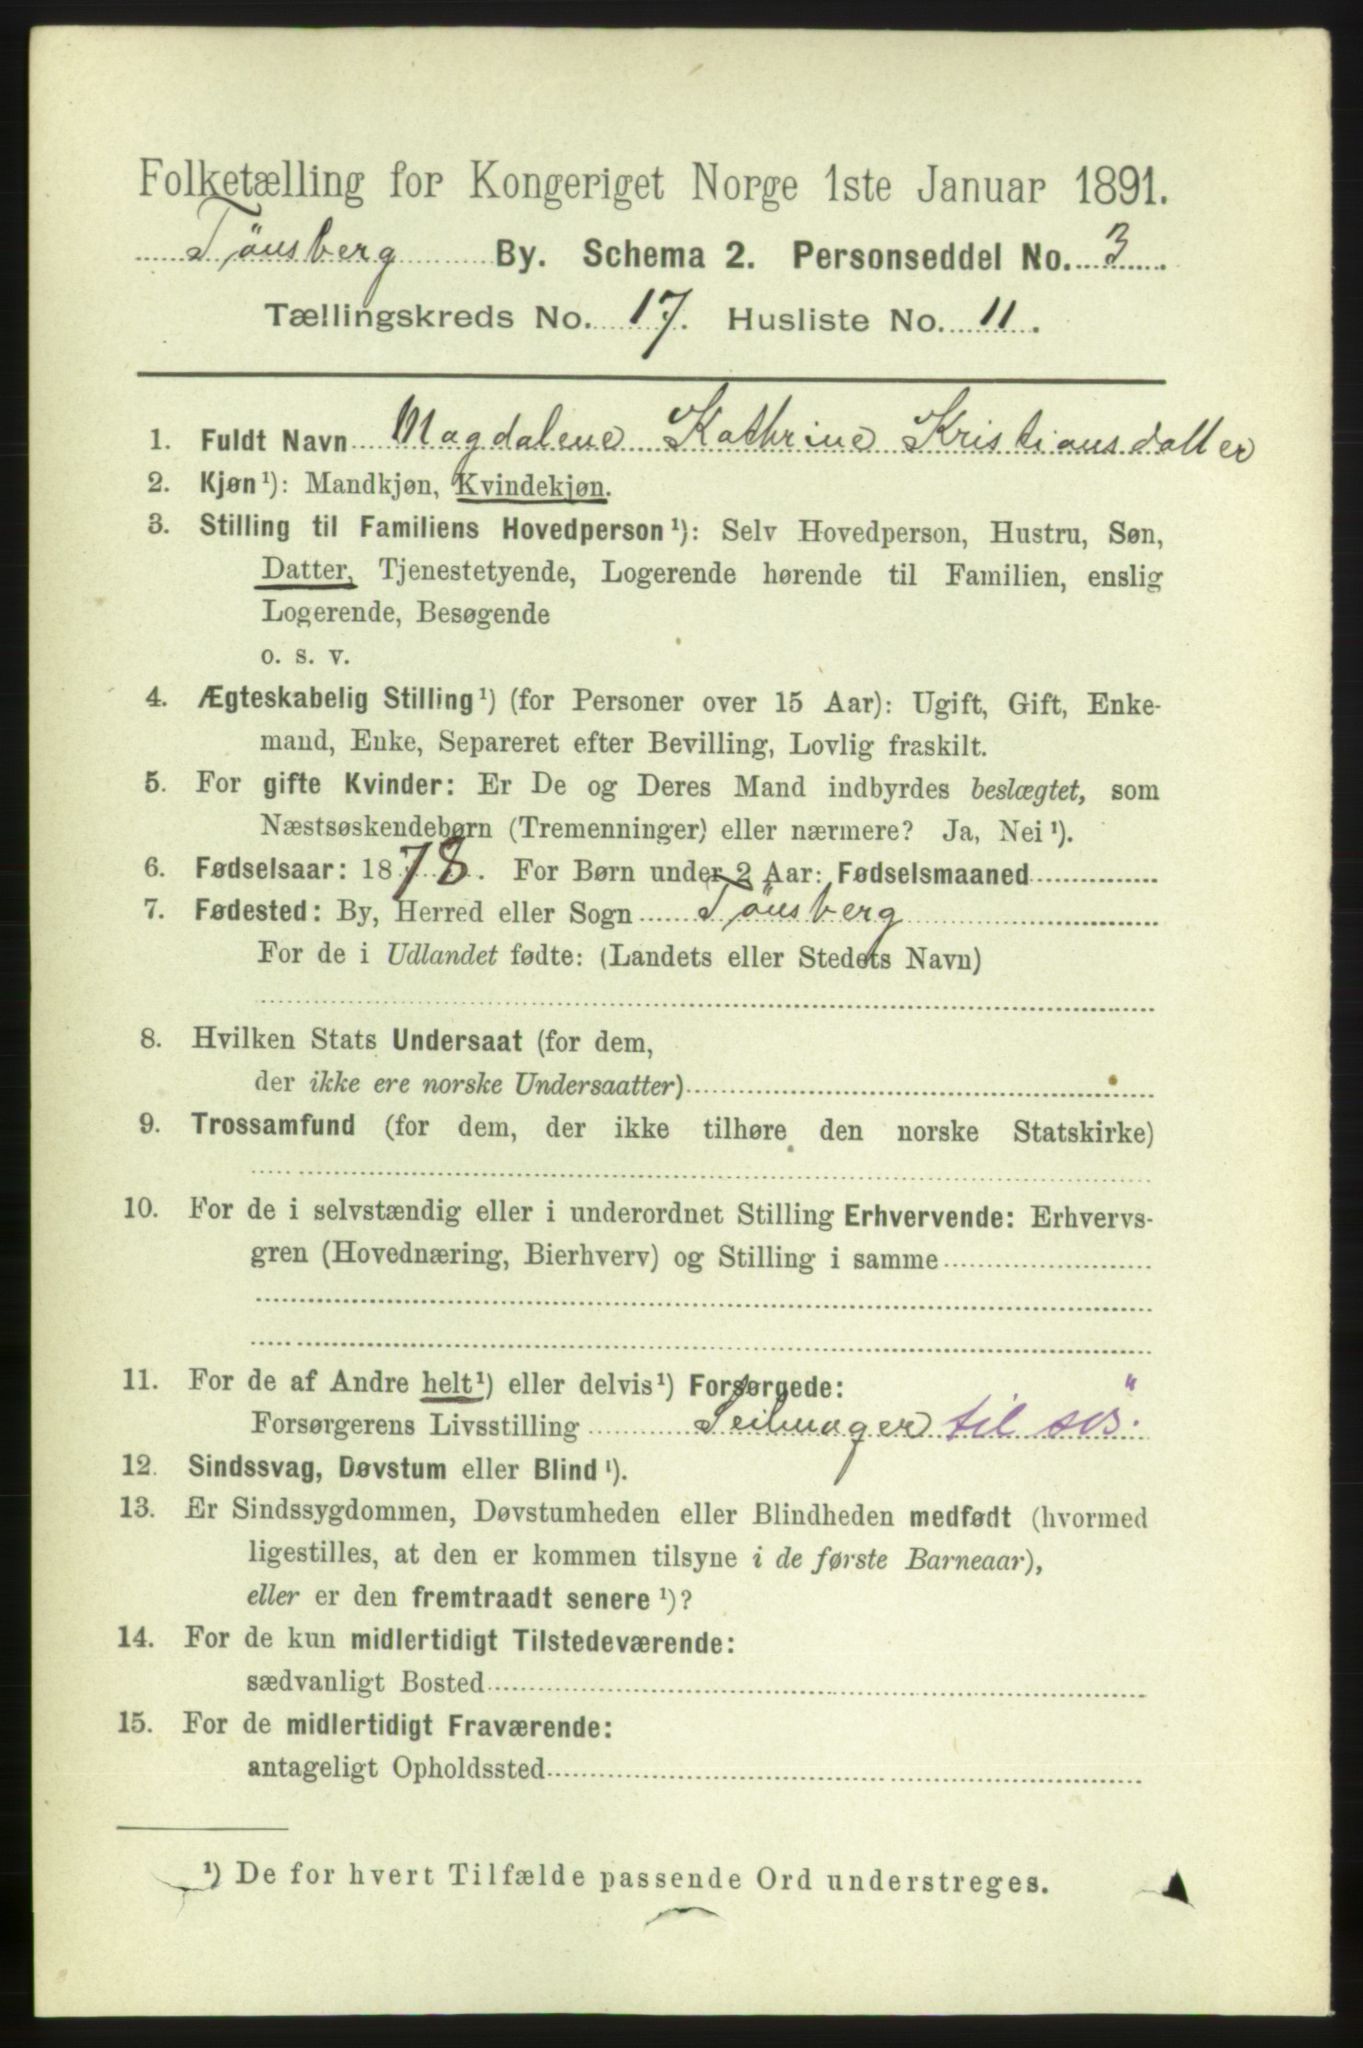 Folketælling for Kongeriget Norge 1ste Januar 1891.
Tönsberg By. Schema 2. Personseddel No. 3.
Tællingskreds No. 17. Husliste No. 11.
1. Fuldt Navn Magdalene Kathrine Kristiansdatter
2. Kjøn¹): Mandkjøn, Kvindekjøn.
3. Stilling til Familiens Hovedperson¹): Selv Hovedperson, Hustru, Søn,
Datter, Tjenestetyende, Logerende hørende til Familien, enslig
Logerende, Besøgende
o. s. v.
4. Ægteskabelig Stilling¹) (for Personer over 15 Aar): Ugift, Gift, Enke-
mand, Enke, Separeret efter Bevilling, Lovlig fraskilt.
5. For gifte Kvinder: Er De og Deres Mand indbyrdes beslægtet, som
Næstsøskendebørn (Tremenninger) eller nærmere? Ja, Nei¹).
6. Fødselsaar: 1878. For Børn under 2 Aar: Fødselsmaaned
7. Fødested: By, Herred eller Sogn Tönsberg
For de i Udlandet fødte: (Landets eller Stedets Navn)
8. Hvilken Stats Undersaat (for dem,
der ikke ere norske Undersaatter)
9. Trossamfund (for dem, der ikke tilhøre den norske Statskirke)
10. For de i selvstændig eller i underordnet Stilling Erhvervende: Erhvervs-
gren (Hovednæring, Bierhverv) og Stilling i samme
11. For de af Andre helt¹) eller delvis¹) Forsørgede:
Forsørgerens Livsstilling Seilmager til søs.
12. Sindssvag, Døvstum eller Blind¹).
13. Er Sindssygdommen, Døvstumheden eller Blindheden medfødt (hvormed
ligestilles, at den er kommen tilsyne i de første Barneaar),
eller er den fremtraadt senere¹)?
14. For de kun midlertidigt Tilstedeværende:
sædvanligt Bosted
15. For de midlertidigt Fraværende:
antageligt Opholdssted
¹) De for hvert Tilfælde passende Ord understreges.